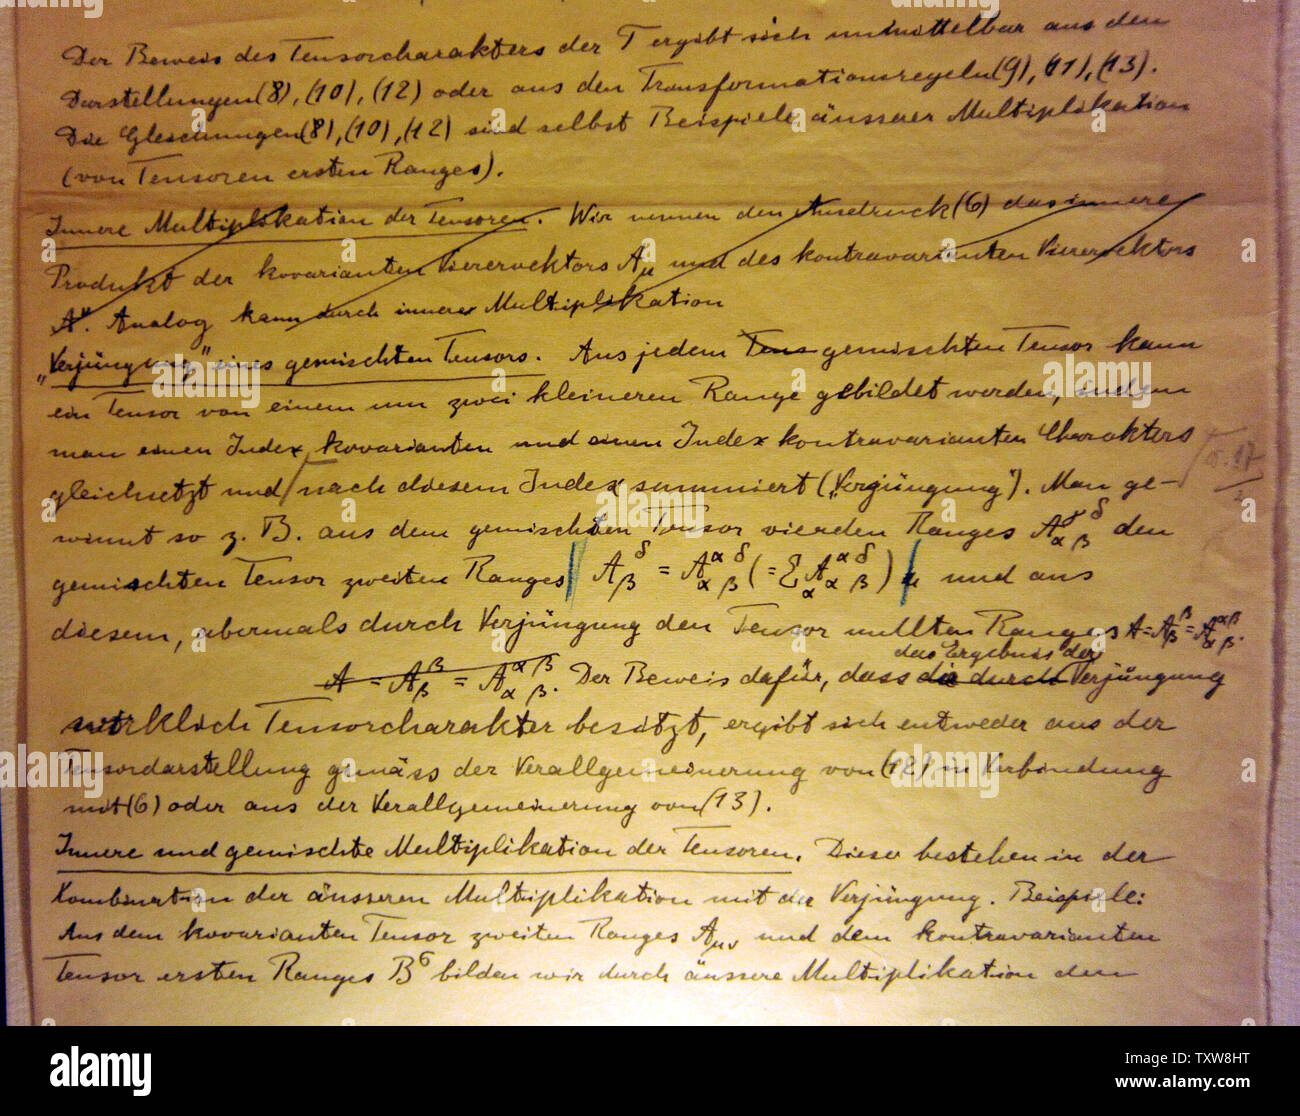 Der Beweis des Tensorcharakters der T ergibt sich unmittelbar aus den
Darstellungen (8), (10), (12) oder aus den Transformationsregeln (9), (11), (13).
Die Gleichungen (8), (10), (12) sind selbst Beispiele äusserer Multiplikation
(von Tensoren ersten Ranges).
Innere Multiplikation der Tensoren. Wir nennen den Ausdruck (6) das innere
Produkt der kovarianten Vierervektors Aμ und des kontravarianten Vierervektors
Aμ. Analog kann durch innere Multiplikation
„Verjüngung" eines gemischten Tensors. Aus jedem Tens gemischten Tensor kann
ein Tensor von einem um zwei kleineren Range gebildet werden, indem
man einen Index kovarianten und einen Index kontravarianten Charakters
gleichsetzt und nach diesem Index summiert („Verjüngung"). Man ge-
winnt so z. B. aus dem gemischten Tensor vierten Ranges A_{αβ}^{γδ} den
gemischten Tensor zweiten Ranges A_β^δ = A_{αβ}^{αδ} (= Σ_α A_{αβ}^{αδ}) und aus
diesem, abermals durch Verjüngung den Tensor nullten Ranges A = A_β^β = A_{αβ}^{αβ}.
das Ergebnis der
A = A_β^β = A_{αβ}^{αβ}. Der Beweis dafür, dass die durch Verjüngung
wirklich Tensorcharakter besitzt, ergibt sich entweder aus der
Tensordarstellung gemäss der Verallgemeinerung von (12) in Verbindung
mit (6) oder aus der Verallgemeinerung von (13).
Innere und gemischte Multiplikation der Tensoren. Diese bestehen in der
Kombination der äusseren Multiplikation mit der Verjüngung. Beispiele:
Aus dem kovarianten Tensor zweiten Ranges Aμν und dem kontravarianten
Tensor ersten Ranges B^σ bilden wir durch äussere Multiplikation den
alamy
TXW8HT
Image ID: TXW8HT
www.alamy.com